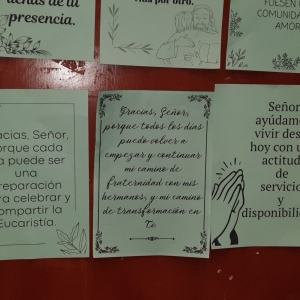 llenas de tu
presencia.
vida por otro.
FUESEN U
COMUNIDA
AMOR
acias, Señor,
orque cada
a puede ser
una
reparación
ra celebrar y
ompartir la
Eucaristía.
Gracias, Señor,
porque todos los días
puedo volver a
empezar y continuar
mi camino de
fraternidad con mis
hermanos, y mi camino
de transformación en
ti.
Señor
ayúdame
vivir des
hoy con u
actitud
de
servicio
y
disponibilid